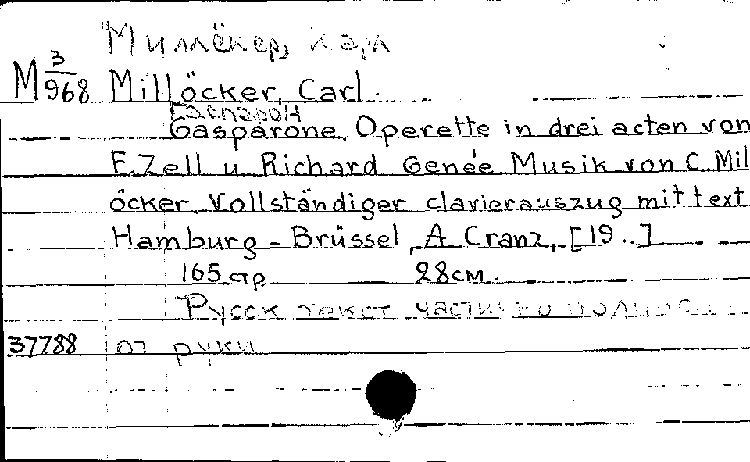 Миллёкер, Карл
М 3/968 Millöcker, Carl
Гаспарон
Gasparone. Operette in drei acten von
F. Zell u. Richard Genée Musik von C. Mil
öcker. Vollständiger clavierauszug mit text
Hamburg - Brüssel, A. Cranz, [19..]
165 стр 28см.
Русск текст частично
37788 от руки